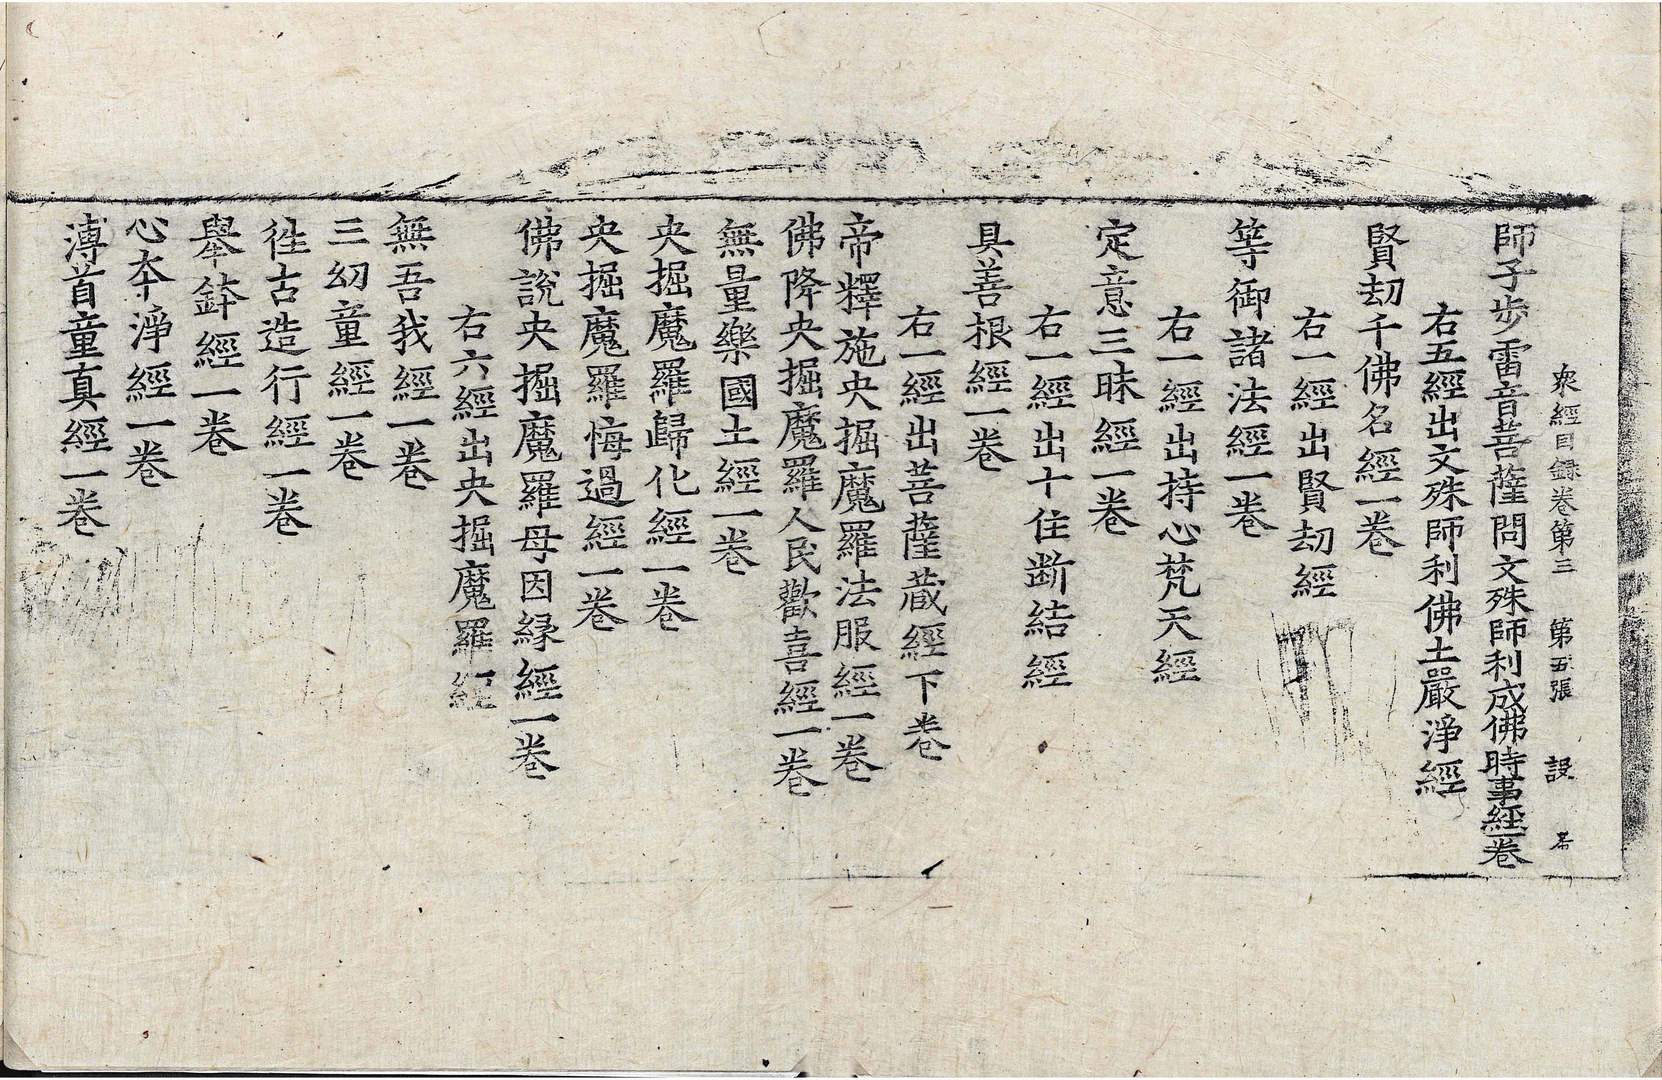 衆經目録卷第三 第五張 設
師子步雷音菩薩問文殊師利成佛時事經一卷
右五經出文殊師利佛土嚴淨經
賢劫千佛名經一卷
右一經出賢劫經
等御諸法經一卷
右一經出持心梵天經
定意三昧經一卷
右一經出十住斷結經
具善根經一卷
右一經出菩薩蔵經下卷
帝釋施央掘魔羅法服經一卷
佛降央掘魔羅人民歡喜經一卷
無量樂國土經一卷
央掘魔羅歸化經一卷
央掘魔羅悔過經一卷
佛說央掘魔羅母因縁經一卷
右六經出央掘魔羅經
無吾我經一卷
三幼童經一卷
徃古造行經一卷
舉鉢經一卷
心夲淨經一卷
溥首童真經一卷